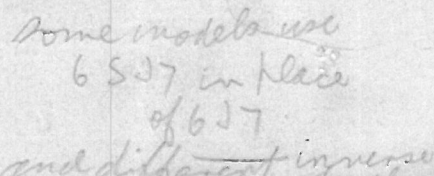 some models use
6SJ7 in place
of 6J7
and different inverse